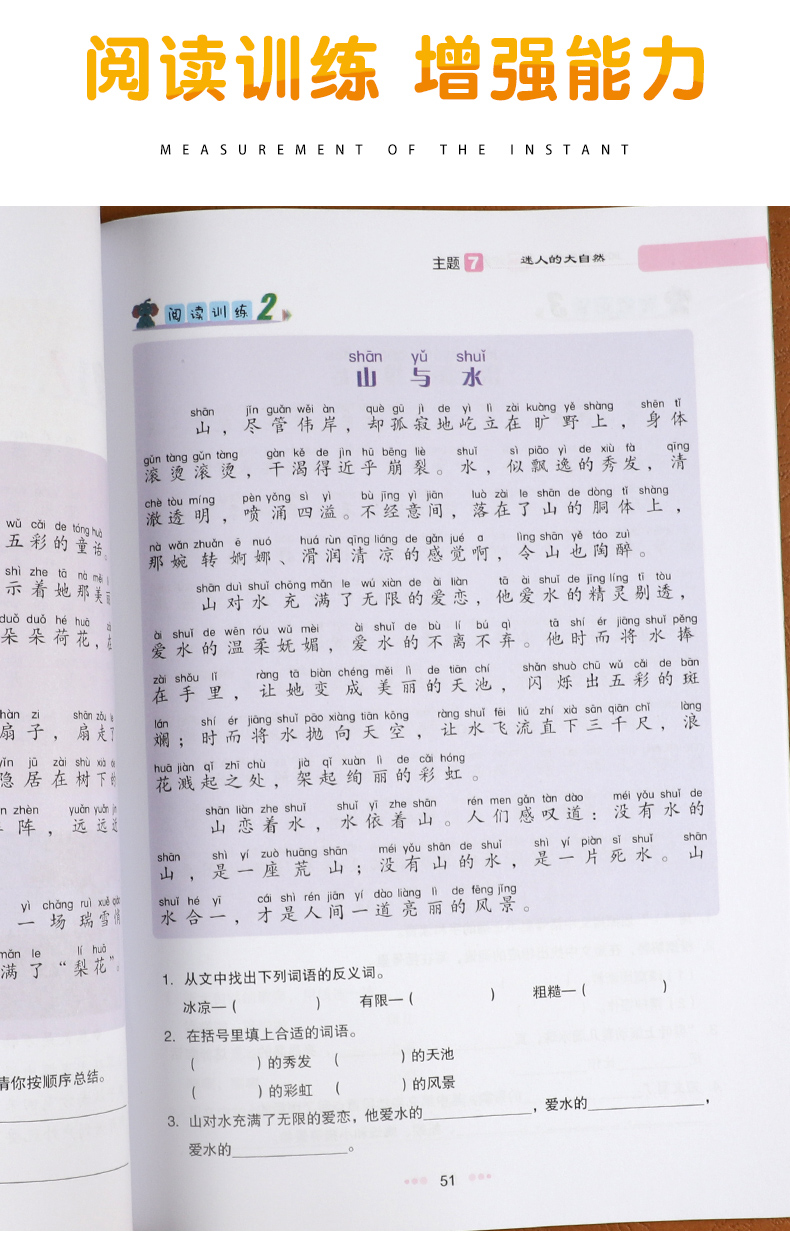 阅读训练 增强能力
MEASUREMENT OF THE INSTANT
主题7 迷人的大自然
阅读训练2
shān yǔ shuǐ
山 与 水
shān jǐn guǎn wěi àn què gū jì de yì lì zài kuàng yě shàng shēn tǐ
山，尽管伟岸，却孤寂地屹立在旷野上，身体
gǔn tàng gǔn tàng gàn kě de jìn hū bēng liè shuǐ sì piāo yì de xiù fà qīng
滚烫滚烫，干渴得近乎崩裂。水，似飘逸的秀发，清
chè tòu míng pèn yǒng sì yì bù jīng yì jiān luò zài le shān de dòng tǐ shàng
澈透明，喷涌四溢。不经意间，落在了山的胴体上，
nà wǎn zhuǎn ē nuó huá rùn qīng liáng de gǎn jué a lìng shān yě táo zuì
那婉转婀娜、滑润清凉的感觉啊，令山也陶醉。
shān duì shuǐ chōng mǎn le wú xiàn de ài liàn tā ài shuǐ de jīng líng tī tòu
山对水充满了无限的爱恋，他爱水的精灵剔透，
ài shuǐ de wēn róu wǔ mèi ài shuǐ de bù lí bú qì tā shí ér jiāng shuǐ pěng
爱水的温柔妩媚，爱水的不离不弃。他时而将水捧
zài shǒu lǐ ràng tā biàn chéng měi lì de tiān chí shǎn shuò chū wǔ cǎi de bān
在手里，让她变成美丽的天池，闪烁出五彩的斑
lán shí ér jiāng shuǐ pāo xiàng tiān kōng ràng shuǐ fēi liú zhí xià sān qiān chǐ làng
斓；时而将水抛向天空，让水飞流直下三千尺，浪
huā jiàn qǐ zhī chù jià qǐ xuàn lì de cǎi hóng
花溅起之处，架起绚丽的彩虹。
shān liàn zhe shuǐ shuǐ yī zhe shān rén men gǎn tàn dào méi yǒu shuǐ de
山恋着水，水依着山。人们感叹道：没有水的
shān shì yí zuò huāng shān méi yǒu shān de shuǐ shì yí piàn sǐ shuǐ shān
山，是一座荒山；没有山的水，是一片死水。山
shuǐ hé yī cái shì rén jiān yí dào liàng lì de fēng jǐng
水合一，才是人间一道亮丽的风景。
1. 从文中找出下列词语的反义词。
冰凉—（ ） 有限—（ ） 粗糙—（ ）
2. 在括号里填上合适的词语。
（ ）的秀发 （ ）的天池
（ ）的彩虹 （ ）的风景
3. 山对水充满了无限的爱恋，他爱水的____________，爱水的____________，
爱水的____________。
51
wǔ cǎi de tóng huà
五彩的童话。
shì zhe tā nà měi
示着她那美
duǒ duǒ hé huā
朵朵荷花，
shàn zi shān zǒu
扇子，扇走
yǐn jū zài shù xià
隐居在树下的
zhèn yuǎn yuǎn
阵，远远
yì chǎng ruì xuě
一场瑞雪
mǎn le lí huā
满了“梨花”。
请你按顺序总结。